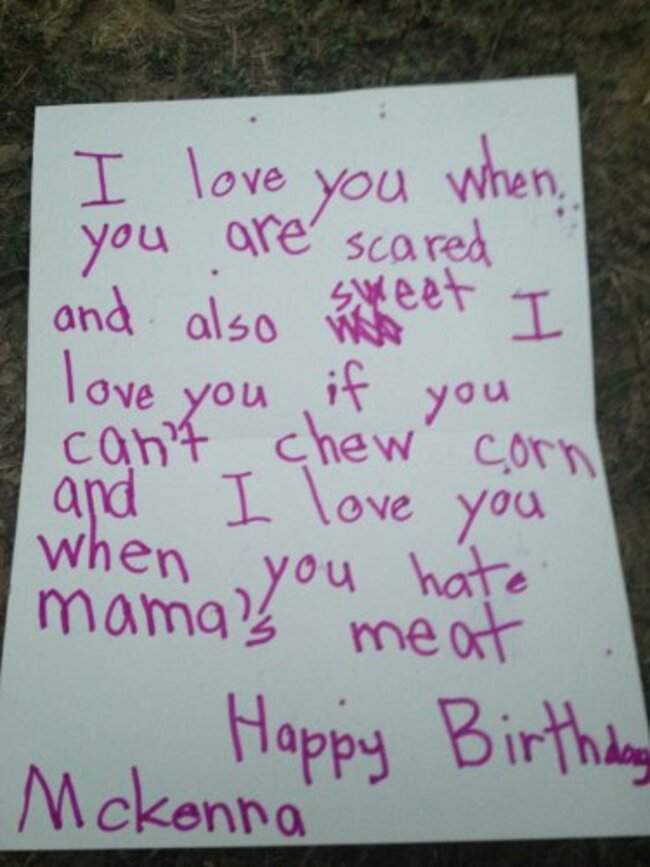 I love you when
you are scared
and also sweet I
love you if you
can't chew corn
and I love you
when you hate
mama's meat
Happy Birthday
Mckenna